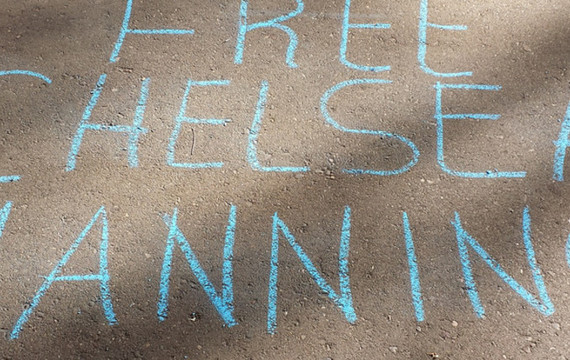 FREE
CHELSEA
MANNING